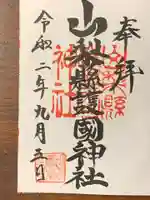 奉拝
山梨縣護國神社
令和二年九月五日